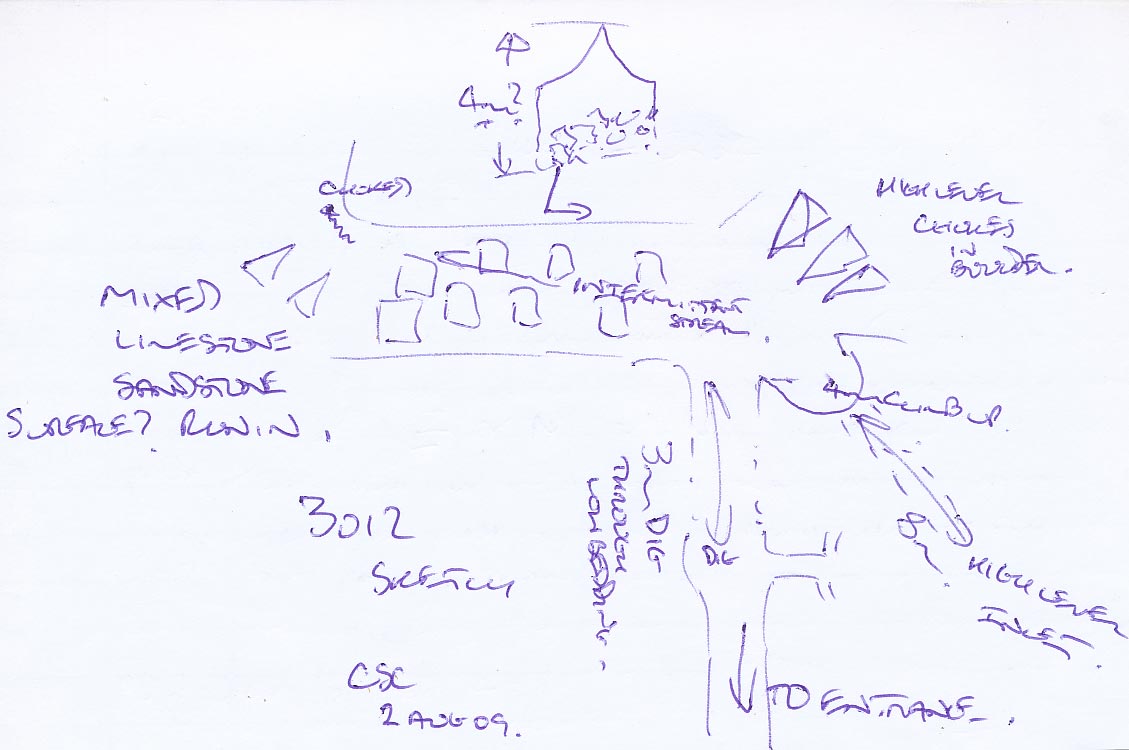 4m?
CHOKED
HIGH LEVEL
CHOKES
IN
BOULDER.
MIXED
LIMESTONE
SANDSTONE
SURFACE? RUN IN.
INTERMITTANT
STREAM.
4m CLIMB UP.
3m DIG
THROUGH
LOW BEDDING.
DIG
8m
HIGH LEVEL
INLET.
3012
SKETCH
CSC
2 AUG 09.
TO ENTRANCE.